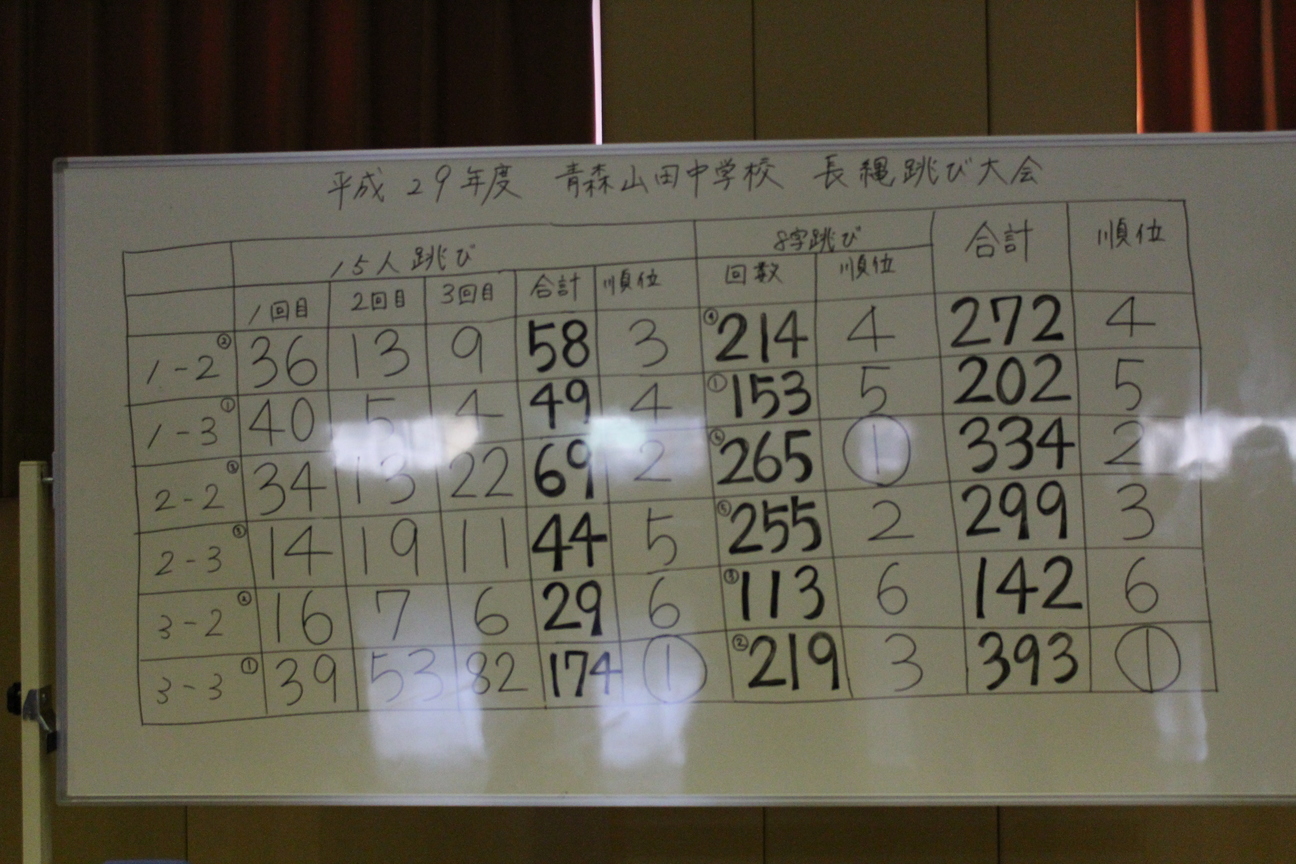 平成29年度 青森山田中学校 長縄跳び大会
15人跳び 8字跳び 合計 順位
1回目 2回目 3回目 合計 順位 回数 順位
1-2 ② 36 13 9 58 3 ④ 214 4 272 4
1-3 ① 40 5 4 49 4 ① 153 5 202 5
2-2 34 13 22 69 2 265 ① 334 2
2-3 14 19 11 44 5 255 2 299 3
3-2 16 7 6 29 6 ③ 113 6 142 6
3-3 ① 39 53 82 174 ① ② 219 3 393 ①